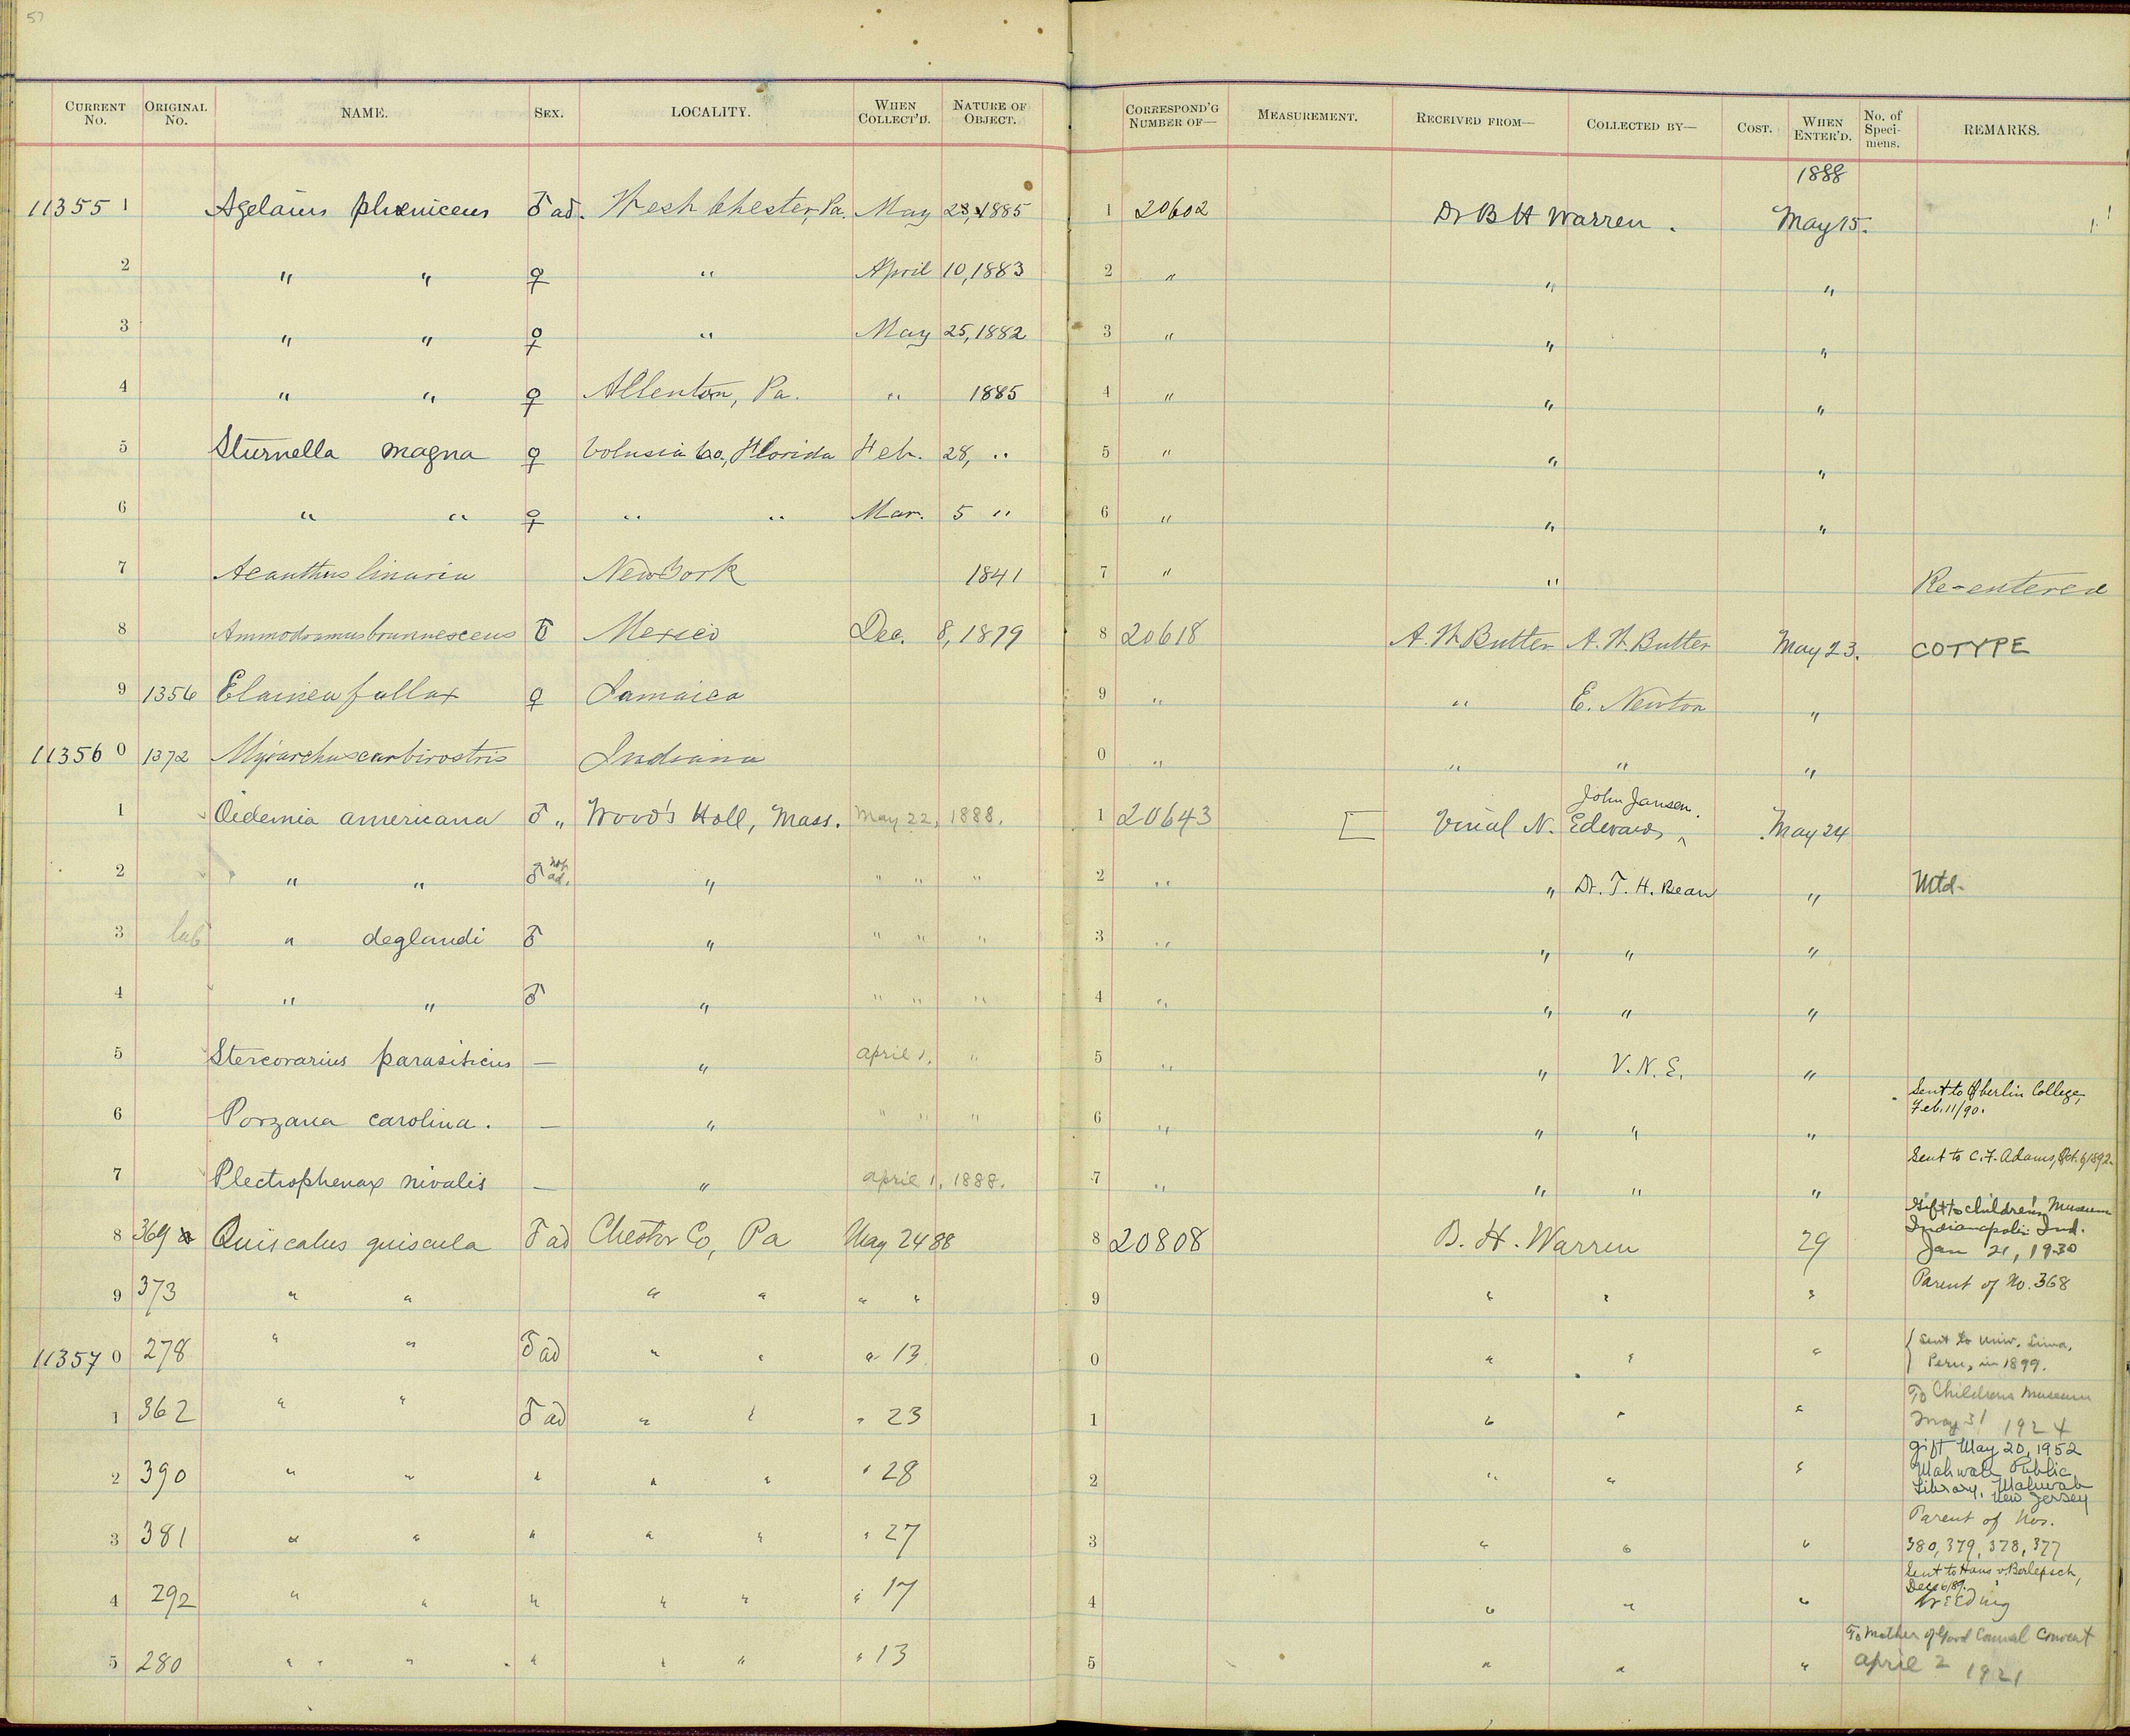 57
CURRENT No. ORIGINAL No. NAME. SEX. LOCALITY. WHEN COLLECT'D. NATURE OF OBJECT. CORRESPOND'G NUMBER OF— MEASUREMENT. RECEIVED FROM— COLLECTED BY— COST. WHEN ENTER'D. No. of Specimens. REMARKS.
1888
11355 1 Agelaius phoeniceus ♂ ad. West Chester, Pa. May 28, 1885 1 20602 Dr B H Warren. May 15.
2 " " ♀ " April 10, 1883 2 " " "
3 " " ♀ " May 25, 1882 3 " " "
4 " " ♀ Allenton, Pa. " 1885 4 " " "
5 Sturnella magna ♀ Volusia Co., Florida Feb. 28, " 5 " " "
6 " " ♀ " " Mar. 5 " 6 " " "
7 Acanthus linaria New York 1841 7 " " Re-entered
8 Ammodramus brunnescens ♂ Mexico Dec. 8, 1879 8 20618 A. W. Butler A. W. Butler May 23. COTYPE
9 1356 Elainea fallax ♀ Jamaica 9 " " E. Newton "
11356 0 1372 Indiana 0 " " " "
John Jansen.
1 Oedemia americana ♂ " Wood's Holl, Mass. May 22, 1888. 1 20643 [ Vinal N. Edwards ^ May 24
2 " " ♂ not ad. " " " " 2 " " Dr. T. H. Bean " Mtd-
3 " deglandi ♂ " " " " 3 " " " "
4 " " ♂ " " " " 4 " " " "
5 Stercorarius parasiticus — " April 1, " 5 " " V. N. E. "
6 Porzana carolina. — " " " " 6 " " " " Sent to Oberlin College, Feb. 11/90.
7 Plectrophenax nivalis — " April 1, 1888. 7 " " " " Sent to C. F. Adams, Oct. 6, 1892.
8 369 Quiscalus quiscula ♂ ad Chester Co, Pa May 24 88 8 20808 B. H. Warren 29 Gift to Children's Museum Indianapolis Ind. Jan 21, 1930
9 373 " " " " " " 9 " " " Parent of No. 368
11357 0 278 " " ♂ ad " " " 13 0 " " " { Sent to Univ. Lima, Peru, in 1899.
1 362 " " ♂ ad " " " 23 1 " " " To Childrens Museum May 31 1924
2 390 " " " " " " 28 2 " " " gift May 20, 1952 Mahwah Public Library, Mahwah New Jersey
3 381 " " " " " " 27 3 " " " Parent of Nos. 380, 379, 378, 377
4 292 " " " " " " 17 4 " " " Sent to Hans v. Berlepsch, Dec 6/89.
5 280 " " " " " " 13 5 " " " To Mother of Good Counsel Convent April 2 1921